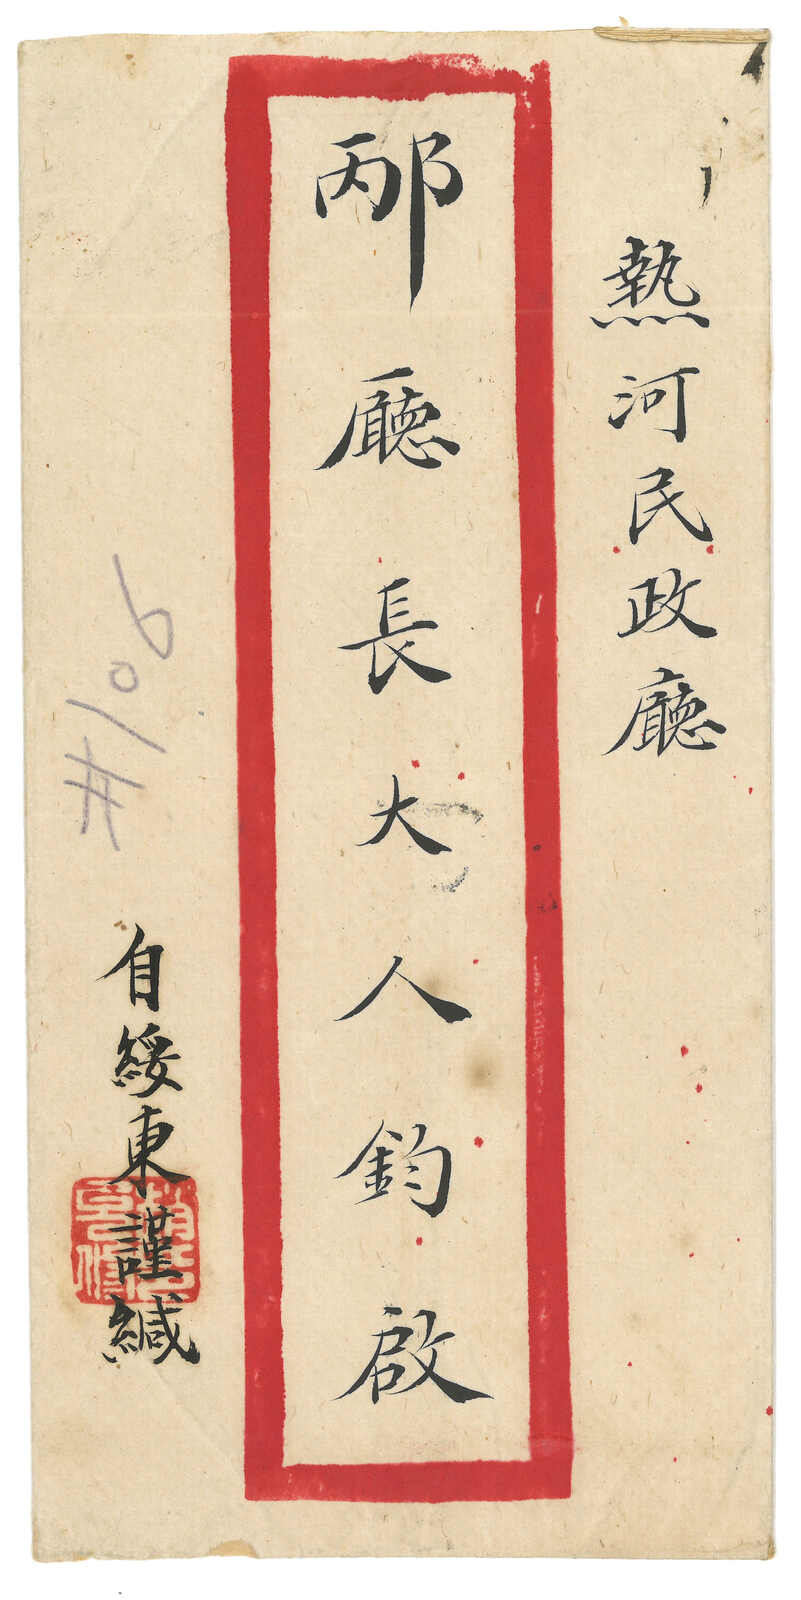 熱河民政廳
邴廳長大人鈞啟
自綏東謹緘
#109